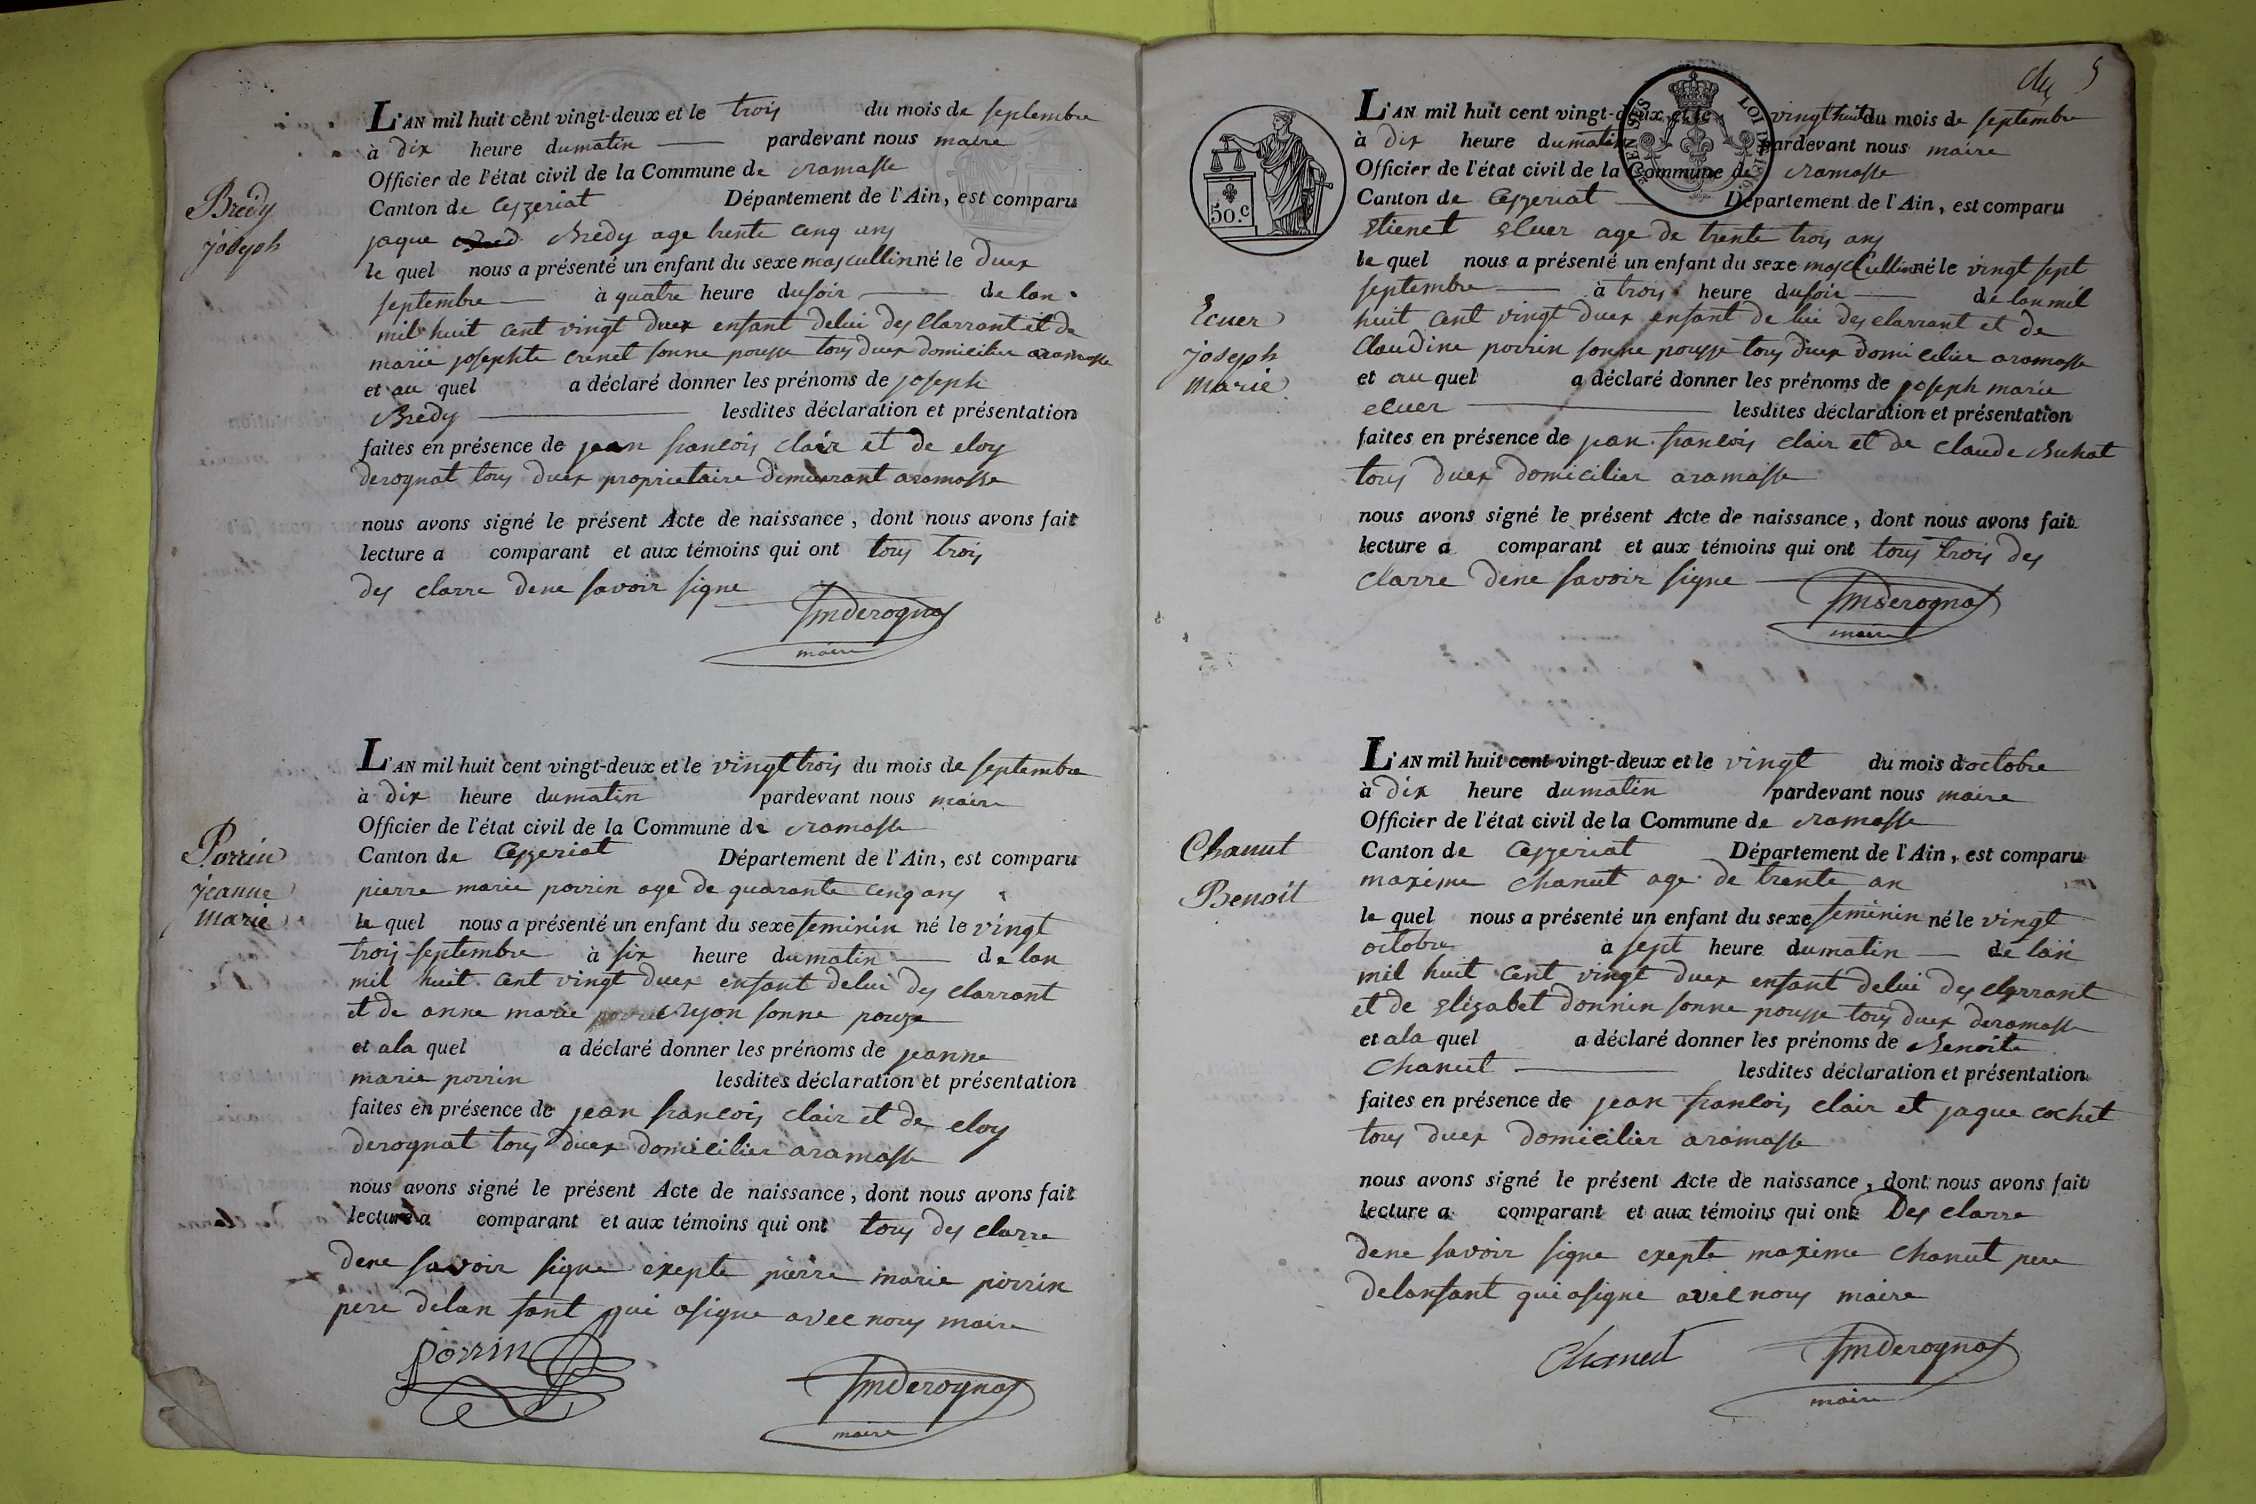 Bredy
joseph
L'AN mil huit cent vingt-deux et le trois du mois de septembre
à dix heure dumatin pardevant nous maire
Officier de l'état civil de la Commune de ramasse
Canton de Ceyzeriat Département de l'Ain, est comparu
jaque Bredy age trente cenq ans
le quel nous a présenté un enfant du sexe mascullin né le duex
septembre à quatre heure dusoir de lan
mil huit cent vingt duex enfant delui des clarrant et de
marie josephte crenet sonne pousse tous duex domicilier aramasse
et au quel a déclaré donner les prénoms de joseph
Bredy lesdites déclaration et présentation
faites en présence de jean francois clair et de eloy
derognat tous duex proprietaire dimeurrant aramasse
nous avons signé le présent Acte de naissance, dont nous avons fait
lecture a comparant et aux témoins qui ont tous trois
des clarre dene savoir signe
Jmderognat
maire
Porrin
jeanne
marie
L'AN mil huit cent vingt-deux et le vingt trois du mois de septembre
à dix heure dumatin pardevant nous maire
Officier de l'état civil de la Commune de ramasse
Canton de Ceyzeriat Département de l'Ain, est comparu
pierre marie porrin age de quarante cenq ans
le quel nous a présenté un enfant du sexe feminin né le vingt
trois septembre à six heure dumatin de lan
mil huit cent vingt duex enfant delui des clarrant
et de anne marie ryon sonne pouse
et ala quel a déclaré donner les prénoms de jeanne
marie porrin lesdites déclaration et présentation
faites en présence de jean francois clair et de eloy
derognat tous duex domicilier aramasse
nous avons signé le présent Acte de naissance, dont nous avons fait
lecture a comparant et aux témoins qui ont tous des clarre
dene savoir signe exepte pierre marie porrin
pere delan fant qui asigne avec nous maire
porrin
Jmderognat
maire
5
50.c
LOI DE
Ecuer
joseph
marie
L'AN mil huit cent vingt-deux et le vingt huit du mois de septembre
à dix heure dumatin pardevant nous maire
Officier de l'état civil de la Commune de ramasse
Canton de Ceyzeriat Département de l'Ain, est comparu
Etienet Ecuer age de trente trois ans
le quel nous a présenté un enfant du sexe mascullin né le vingt sept
septembre à trois heure dusoir de lan mil
huit cent vingt duex enfant de lui des clarrant et de
Claudine porrin sonne pousse tous duex domicilier aramasse
et au quel a déclaré donner les prénoms de joseph marie
ecuer lesdites déclaration et présentation
faites en présence de jean francois clair et de claude Buhat
tous duex domicilier aramasse
nous avons signé le présent Acte de naissance, dont nous avons fait
lecture a comparant et aux témoins qui ont tous trois des
clarre dene savoir signe
Jmderognat
maire
Chanut
Benoit
L'AN mil huit cent vingt-deux et le vingt du mois doctobre
à dix heure dumatin pardevant nous maire
Officier de l'état civil de la Commune de ramasse
Canton de Ceyzeriat Département de l'Ain, est comparu
maxime chanut age de trente an
le quel nous a présenté un enfant du sexe feminin né le vingt
octobre à sept heure dumatin de lan
mil huit cent vingt duex enfant delui des clarrant
et de Elizabet donnin sonne pousse tous duex deramasse
et ala quel a déclaré donner les prénoms de Benoite
Chanut lesdites déclaration et présentation
faites en présence de jean francois clair et jaque cochet
tous duex domicilier aramasse
nous avons signé le présent Acte de naissance, dont nous avons fait
lecture a comparant et aux témoins qui ont des clarre
dene savoir signe exepte maxime chanut pere
delanfant qui asigne avec nous maire
Chanut
Jmderognat
maire